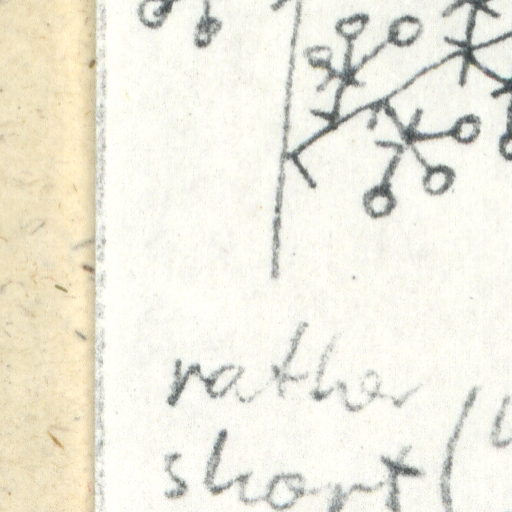 rather
short (